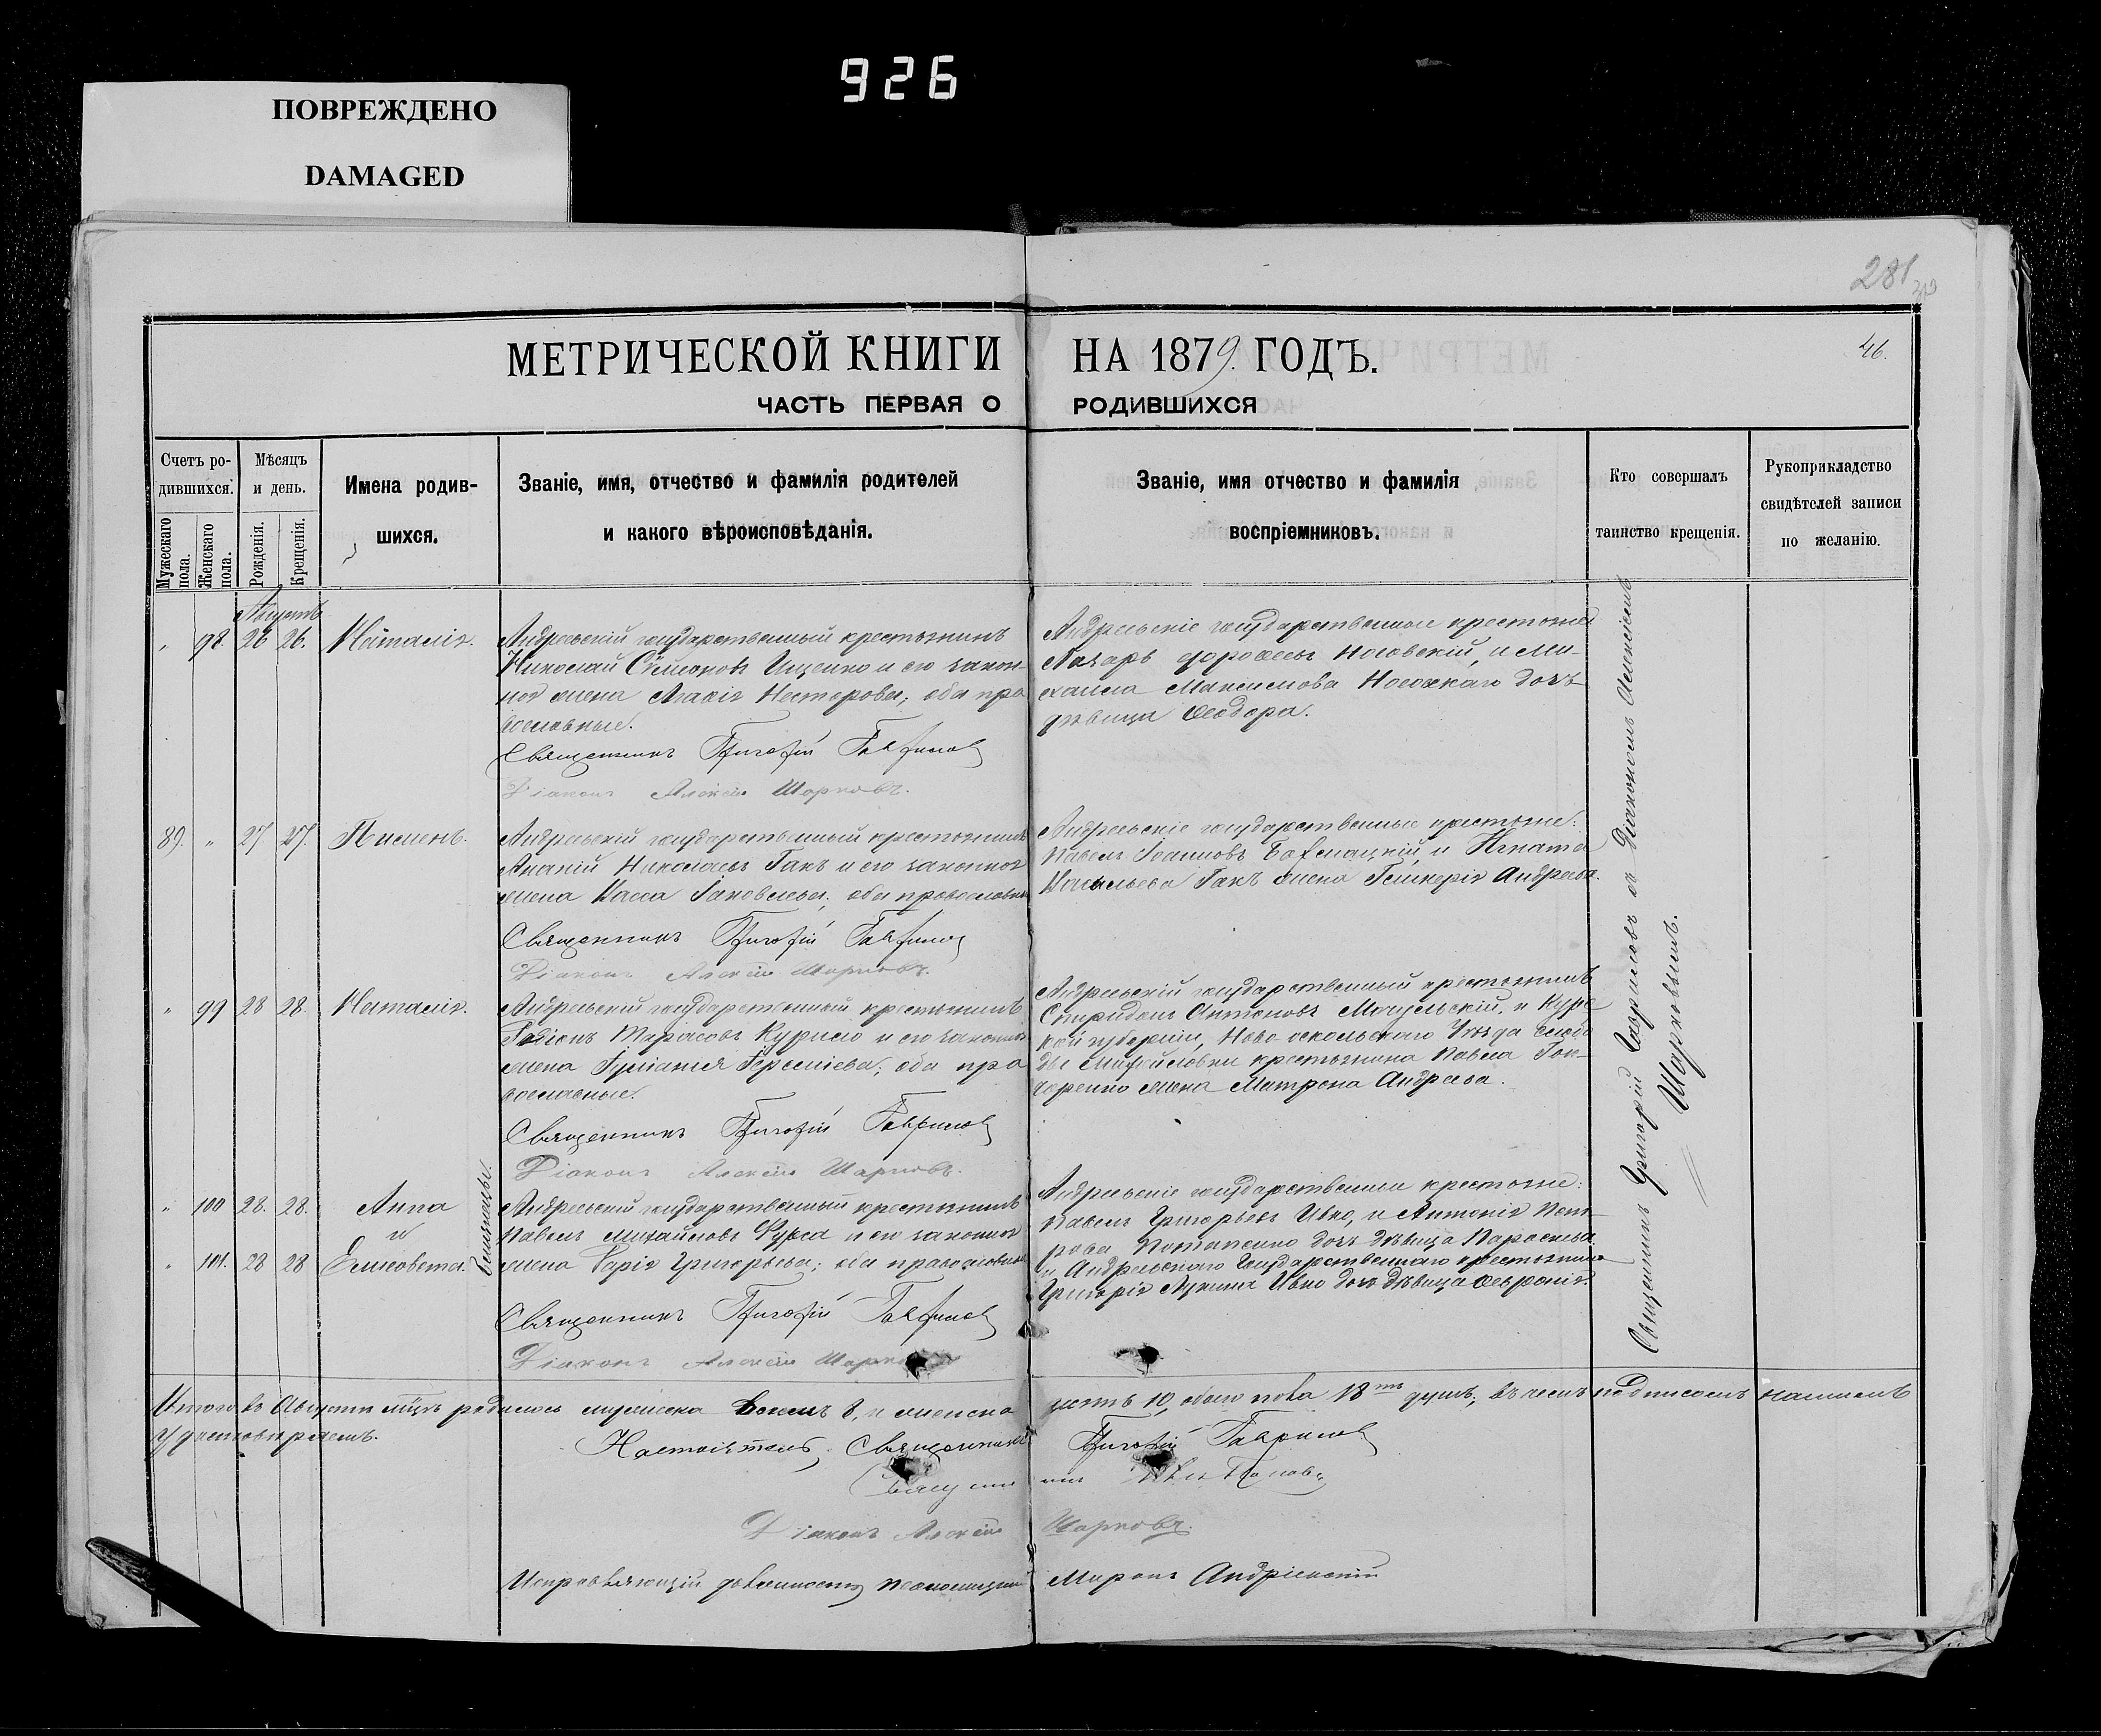 926
ПОВРЕЖДЕНО
DAMAGED
281
46.
МЕТРИЧЕСКОЙ КНИГИ НА 1879. ГОДЪ.
ЧАСТЬ ПЕРВАЯ О РОДИВШИХСЯ
Счетъ ро-
дившихся.
Мужескаго пола.
Женскаго пола.
Мѣсяцъ
и день.
Рожденія.
Крещенія.
Имена родив-
шихся.
Званіе, имя, отчество и фамилія родителей
и какого вѣроисповѣданія.
Званіе, имя отчество и фамилія
воспріемниковъ.
Кто совершалъ
таинство крещенія.
Рукоприкладство
свидѣтелей записи
по желанію.
Августъ
„ 98. 26 26. Наталія.
Андреевскій государственный крестьянинъ
Николай Семіоновъ Ищенко и его закон-
ная жена Агафія Несторова; оба пра
вославные.
Священникъ Григорій Гавриловъ
Діаконъ Алексѣй Шарковъ.
Андреевскіе государственные крестьяне
Лазарь Ноговскій, и Ми-
хаила Максимова дочь
дѣвица Ѳеодора.
89. „ 27. 27. Пименъ.
Андреевскій государственный крестьянинъ
Ананій Николаевъ Гакъ и его законная
жена Васса Іаковлева; оба православные
Священникъ Григорій Гавриловъ
Діаконъ Алексѣй Шарковъ.
Андреевскіе государственные крестьяне:
Павелъ Іоанновъ и Игната
Васильева Гакъ жена Гликерія Андреева.
„ 99 28 28. Наталія.
Андреевскій государственный крестьянинъ
Родіонъ Тарасовъ и его законная
жена Іуліанія Іереміева; оба пра
вославные.
Священникъ Григорій Гавриловъ
Діаконъ Алексѣй Шарковъ.
Андреевскій государственный крестьянинъ
Спиридонъ Антоновъ и Курс
кой губерніи, Ново оскольскаго Уѣзда Слобо
ды Михайловки крестьянина Павла Гон-
чаренко жена Матрона Андреева.
„ 100 28. 28. Анна
и
„ 101. 28 28 Елисавета.
близнецы.
Андреевскій государственный крестьянинъ
Павелъ Михайловъ Фурса и его законная
жена Дарія Григорьева; оба православные
Священникъ Григорій Гавриловъ
Діаконъ Алексѣй Шарковъ
Андреевскіе государственные крестьяне:
Павелъ Григорьевъ Ивко, и Антонія Пет-
рова Потапенко дочь дѣвица Параскева
и Андреевскаго Государственнаго крестьянина
Григорія Лукина Ивко дочь дѣвица Февронія.
Священникъ Григорій Гавриловъ съ Діакономъ Алексіемъ
Шарковымъ.
Итого въ Августѣ мѣцѣ родилось мужеска восемь 8, и женска десять 10, обоего пола 18ть душъ; въ чемъ подписомъ нашимъ
удостовѣряемъ.
Настоятель, Священникъ Григорій Гавриловъ
Священникъ Поповъ
Діаконъ Алексѣй Шарковъ.
Исправляющій должность псаломщика Миронъ Андріевскій